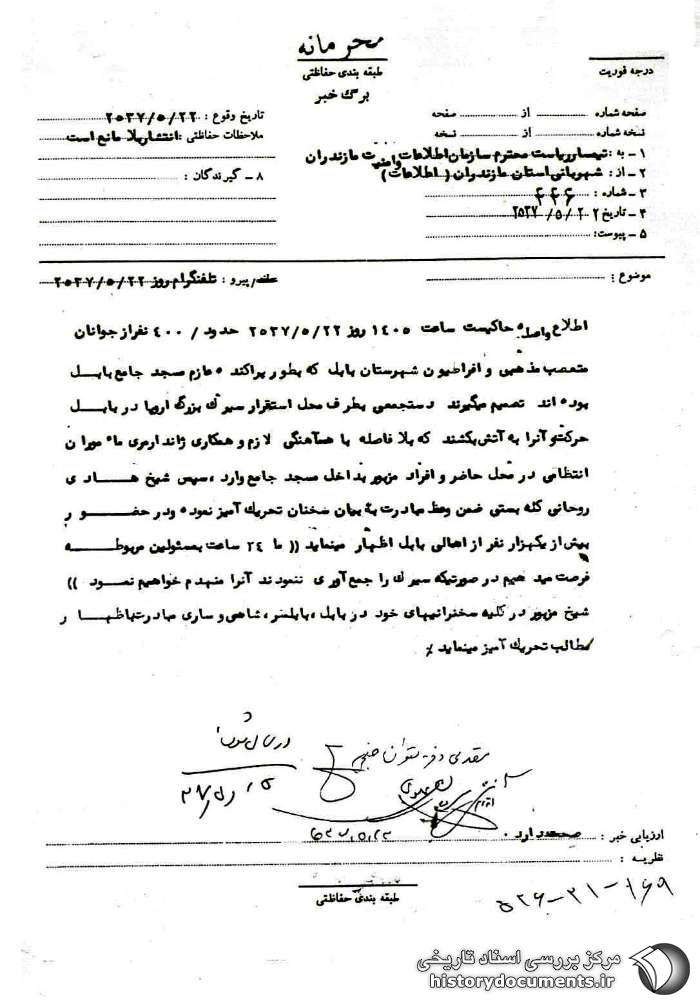 محرمانه
طبقه بندی حفاظتی
برگ خبر
درجه فوریت
صفحه شماره از صفحه
نسخه شماره از نسخه
۱ – به : تیمسار ریاست محترم سازمان اطلاعات و امنیت مازندران
۲ – از : شهربانی استان مازندران ( اطلاعات )
۳ – شماره : ۴۴۶
۴ – تاریخ ۲۵۳۷/۵/۲۲
۵ – پیوست :
تاریخ وقوع : ۲۵۳۷/۵/۲۲
ملاحظات حفاظتی : انتشار بلا مانع است
۸ – گیرندگان :
موضوع :
پیرو : تلفنگرام روز ۲۵۳۷/۵/۲۲
اطلاع واصله حاکیست ساعت ۱۴۰۵ روز ۲۵۳۷/۵/۲۲ حدود / ۴۰۰ نفر از جوانان
متعصب مذهبی و افراطیون شهرستان بابل که بطور پراکنده عازم مسجد جامع بابل
بوده اند تصمیم میگیرند دستجمعی بطرف محل استقرار سیرك بزرگ اروپا در بابل
حرکت و آنرا به آتش بکشند که بلا فاصله با هماهنگی لازم و همکاری ژاندارمری مامورا ن
انتظامی در محل حاضر و افراد مزبور بداخل مسجد جامع وارد ، سپس شیخ هـــادی
روحانی کله بستی ضمن وعظ مبادرت به بیان سخنان تحریك آمیز نموده و در حضـــور
بیش از یکهزار نفر از اهالی بابل اظهار مینماید (( ما ۲۴ ساعت بمسئولین مربوطـــه
فرصت مید هیم در صورتیکه سیرك را جمع آوری ننمودند آنرا منهدم خواهیم نمـــود ))
شیخ مزبور در کلیه سخنرانیهای خود در بابل ، بابلسر ، شاهی و ساری مبادرت باظهـــار
مطالب تحریك آمیز مینماید ٪
ارزیابی خبر : صحت دارد
نظریه :
طبقه بندی حفاظتی
مرکز بررسی اسناد تاریخی
historydocuments.ir